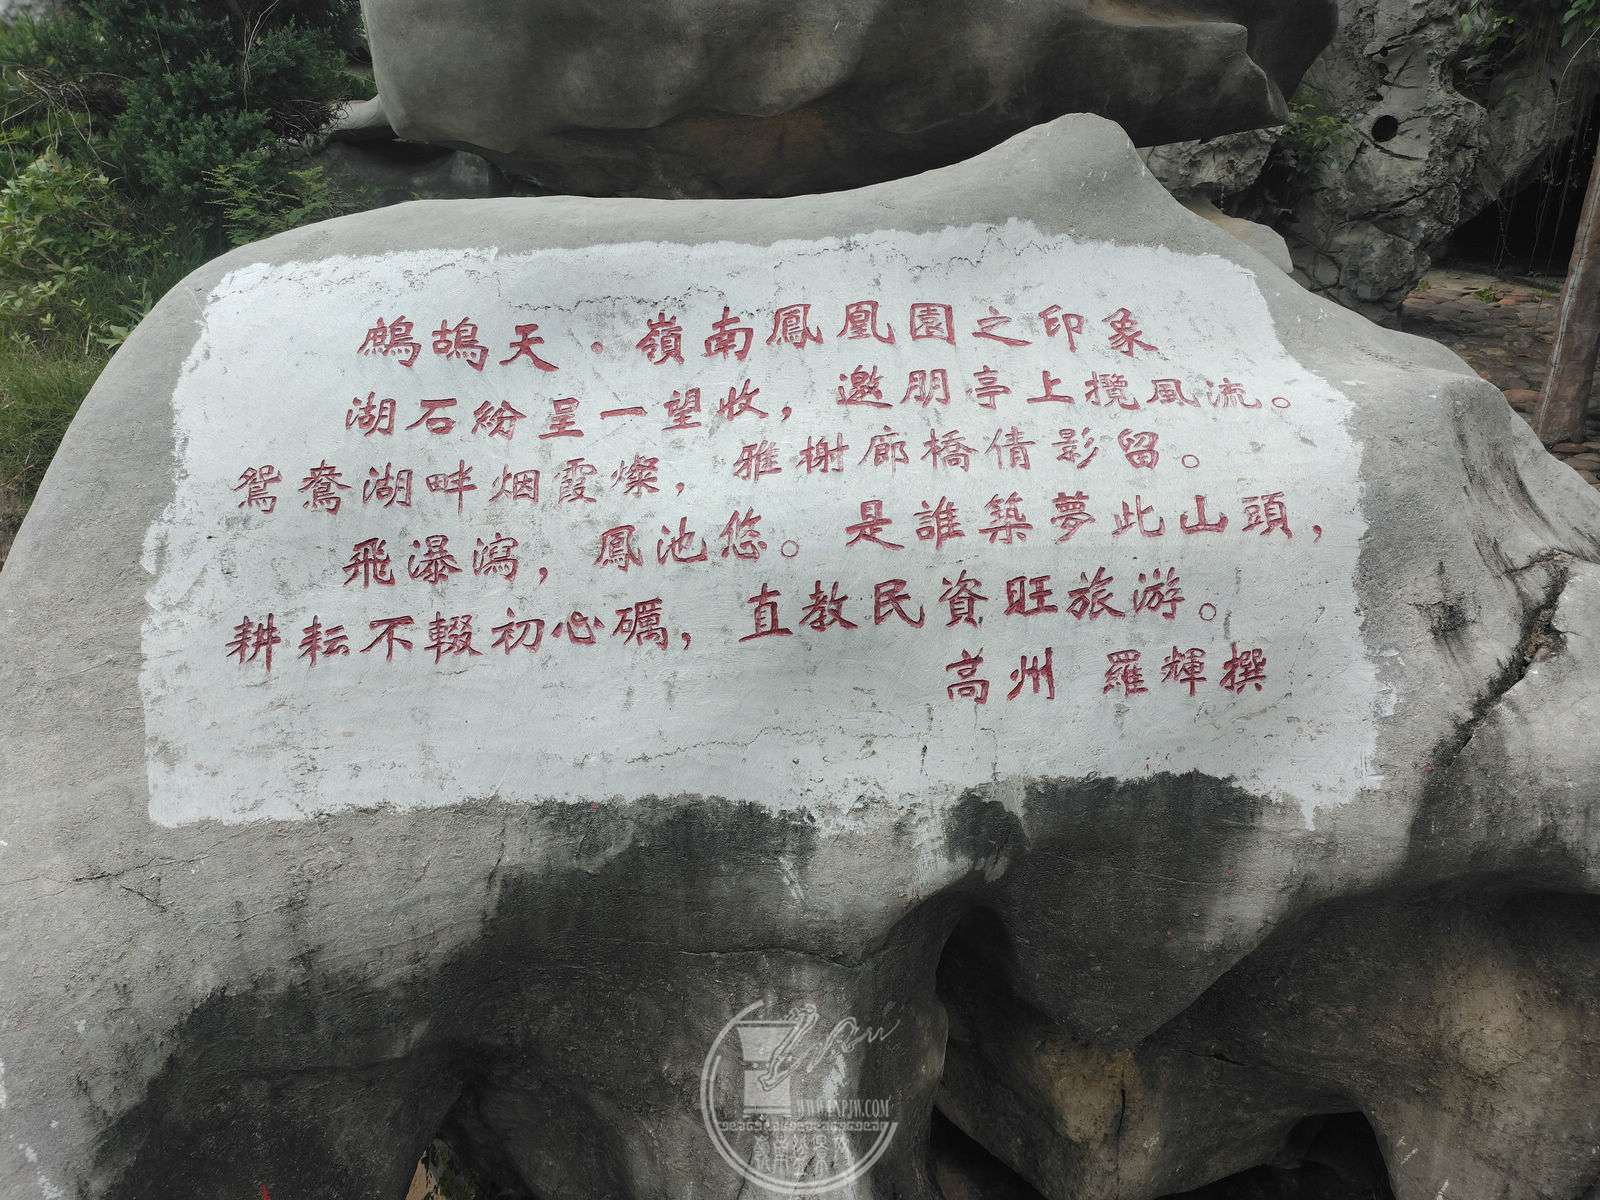 鷓鴣天·嶺南鳳凰園之印象
湖石紛呈一望收，邀朋亭上攬風流。
鴛鴦湖畔烟霞燦，雅榭廊橋倩影留。
飛瀑瀉，鳳池悠。是誰築夢此山頭，
耕耘不輟初心礪，直教民資旺旅游。
高州 羅輝撰
WWW.LNPJW.COM